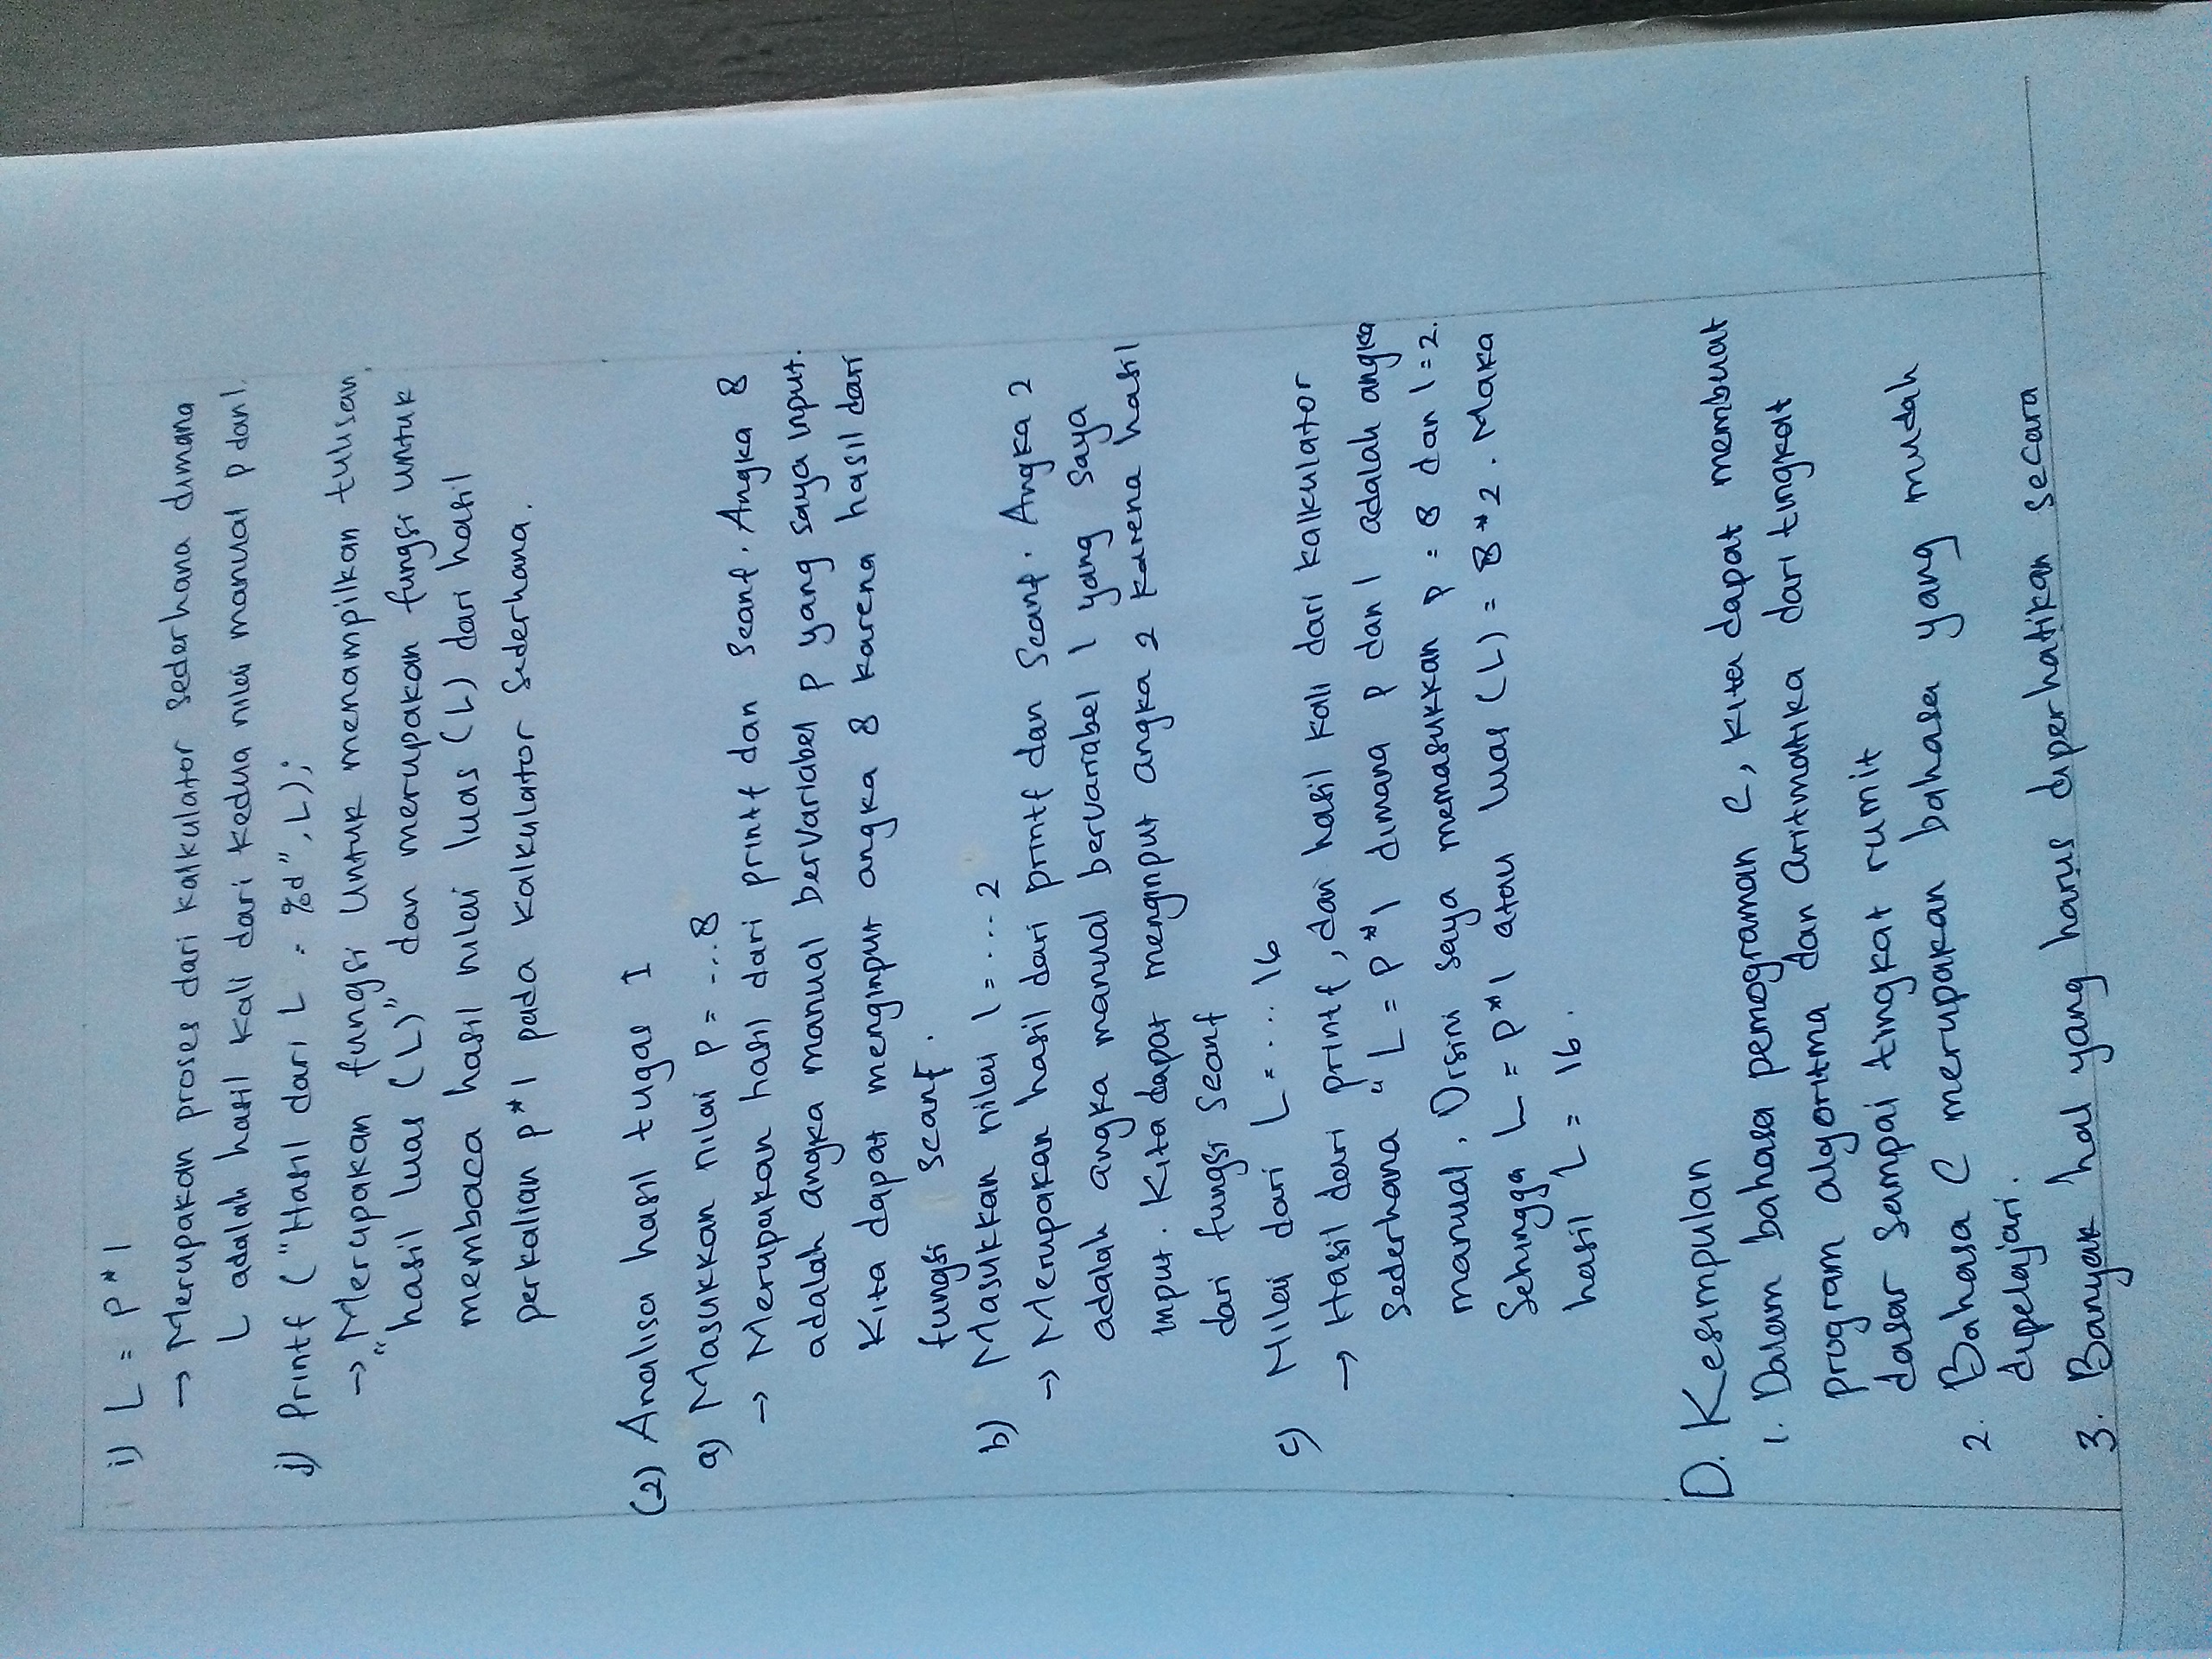 i) L = P * l
→ Merupakan proses dari kalkulator sederhana dimana
L adalah hasil kali dari kedua nilai manual p dan l.
j) Printf ("Hasil dari L = %d", L);
→ Merupakan fungsi untuk menampilkan tulisan
"hasil luas (L)" dan merupakan fungsi untuk
membaca hasil nilai luas (L) dari hasil
perkalian p*l pada kalkulator sederhana.
(2) Analisa hasil tugas I
a) Masukkan nilai P = ...8
→ Merupakan hasil dari printf dan Scanf. Angka 8
adalah angka manual berVariabel P yang saya input.
Kita dapat menginput angka 8 karena hasil dari
fungsi Scanf.
b) Masukkan nilai l = .... 2
→ Merupakan hasil dari printf dan Scanf. Angka 2
adalah angka manual bervariabel l yang saya
input. Kita dapat menginput angka 2 karena hasil
dari fungsi Scanf
c) Nilai dari L = .... 16
→ Hasil dari printf, dari hasil kali dari kalkulator
sederhana "L = P * l dimana p dan l adalah angka
manual. Disini saya memasukkan P = 8 dan l = 2.
Sehingga L = P * l atau luas (L) = 8 * 2. Maka
hasil L = 16.
D. Kesimpulan
1. Dalam bahasa pemograman C, kita dapat membuat
program algoritma dan aritmatika dari tingkat
dasar sampai tingkat rumit
2. Bahasa C merupakan bahasa yang mudah
dipelajari.
3. Banyak hal yang harus diperhatikan secara